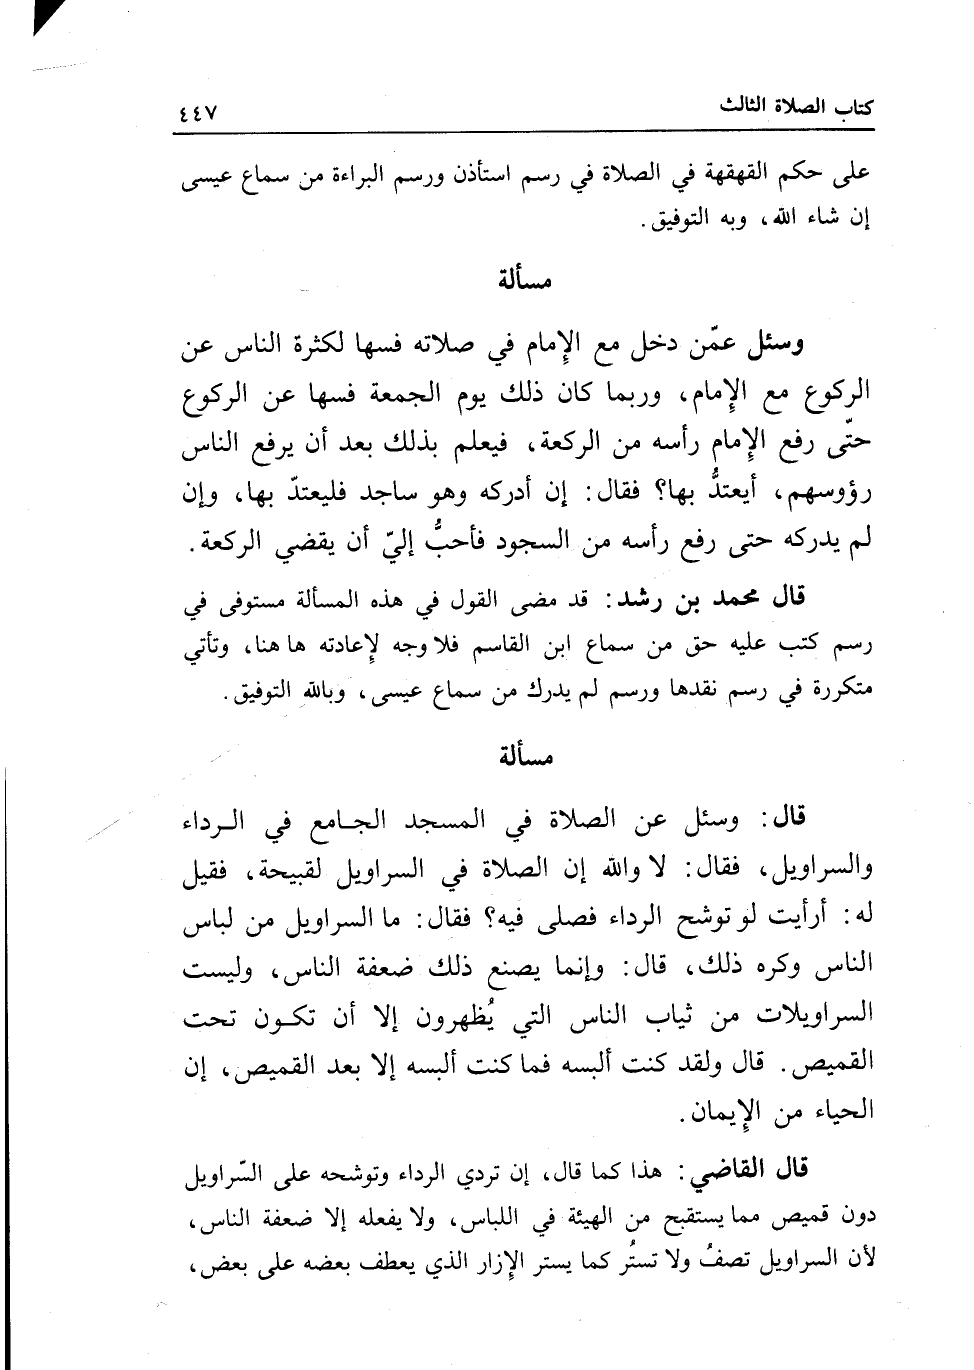 كتاب الصلاة الثالث ٤٤٧
على حكم القهقهة في الصلاة في رسم استأذن ورسم البراءة من سماع عيسى
إن شاء الله، وبه التوفيق.
مسألة
وسئل عمّن دخل مع الإمام في صلاته فسها لكثرة الناس عن
الركوع مع الإمام، وربما كان ذلك يوم الجمعة فسها عن الركوع
حتّى رفع الإمام رأسه من الركعة، فيعلم بذلك بعد أن يرفع الناس
رؤوسهم، أيعتدُّ بها؟ فقال: إن أدركه وهو ساجد فليعتدّ بها، وإن
لم يدركه حتى رفع رأسه من السجود فأحبُّ إليّ أن يقضي الركعة.
قال محمد بن رشد: قد مضى القول في هذه المسألة مستوفى في
رسم كتب عليه حق من سماع ابن القاسم فلا وجه لإعادته ها هنا، وتأتي
متكررة في رسم نقدها ورسم لم يدرك من سماع عيسى، وبالله التوفيق.
مسألة
قال: وسئل عن الصلاة في المسجد الجامع في الرداء
والسراويل، فقال: لا والله إن الصلاة في السراويل لقبيحة، فقيل
له: أرأيت لو توشح الرداء فصلى فيه؟ فقال: ما السراويل من لباس
الناس وكره ذلك، قال: وإنما يصنع ذلك ضعفة الناس، وليست
السراويلات من ثياب الناس التي يُظهرون إلا أن تكون تحت
القميص. قال ولقد كنت ألبسه فما كنت ألبسه إلا بعد القميص، إن
الحياء من الإيمان.
قال القاضي: هذا كما قال، إن تردي الرداء وتوشحه على السّراويل
دون قميص مما يستقبح من الهيئة في اللباس، ولا يفعله إلا ضعفة الناس،
لأن السراويل تصفُ ولا تستُر كما يستر الإزار الذي يعطف بعضه على بعض،